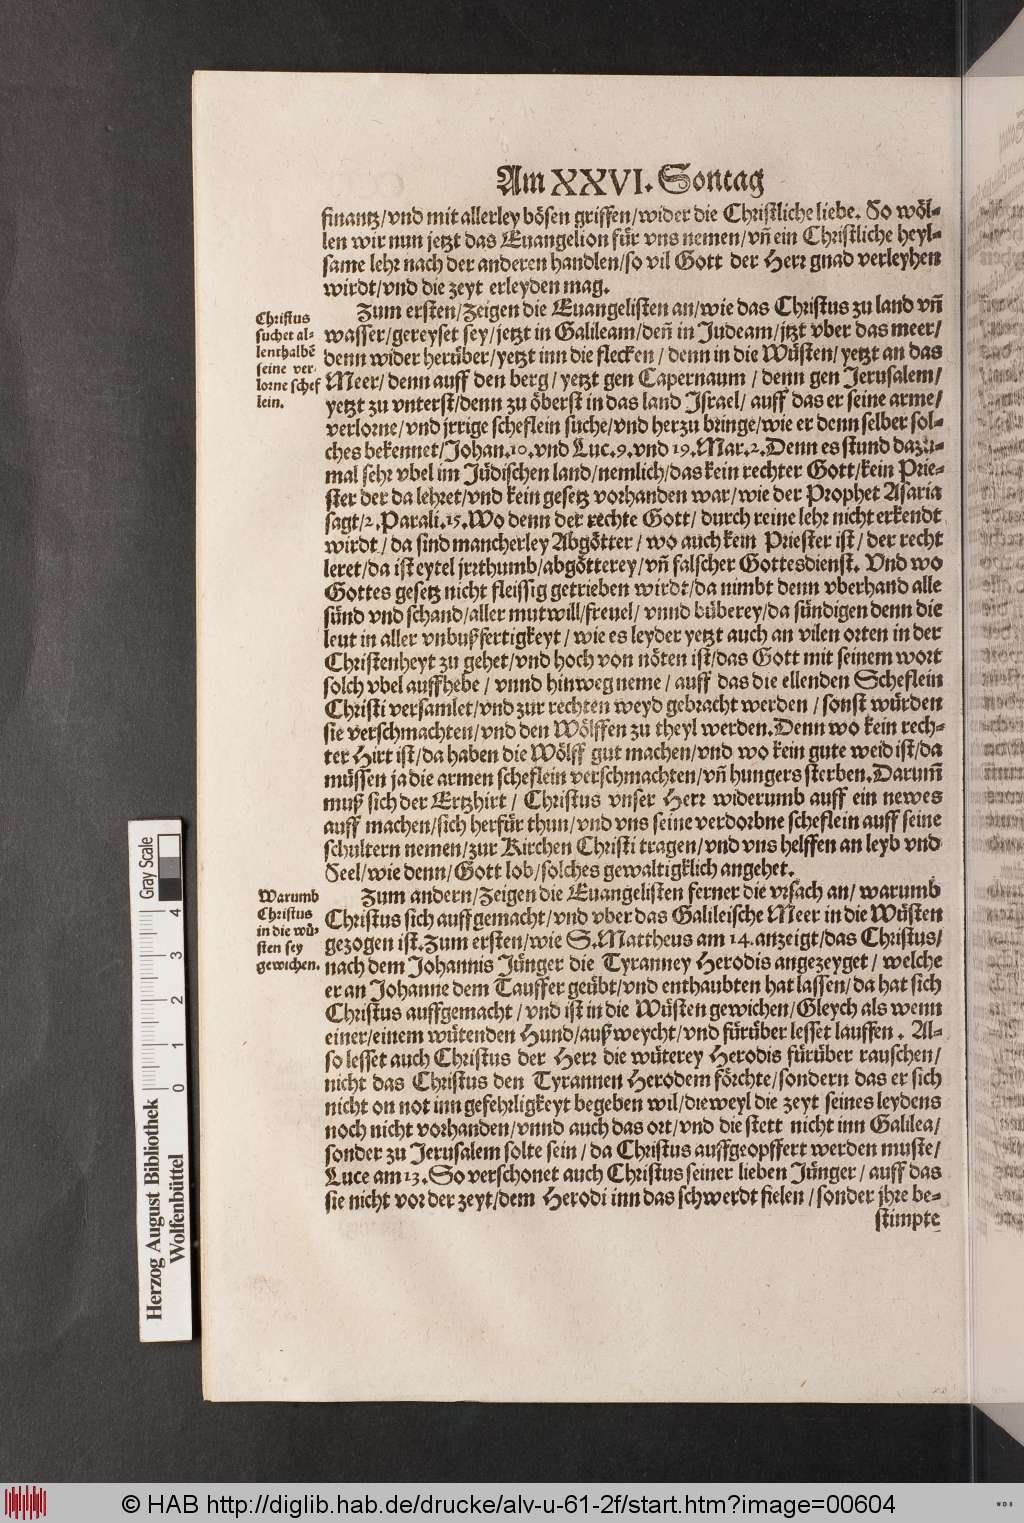 Am XXVI. Sontag
finantz/vnd mit allerley bösen griffen/wider die Christliche liebe. So wöl-
len wir nun jetzt das Euangelion für vns nemen/vñ ein Christliche heyl-
same lehr nach der anderen handlen/so vil Gott der Herr gnad verleyhen
wirdt/vnd die zeyt erleyden mag.
Christus
suchet al-
lenthalbē
seine ver-
lorne schef
lein.
Zum ersten/Zeigen die Euangelisten an/wie das Christus zu land vñ
wasser/gereyset sey/jetzt in Galileam/deñ in Judeam/jtzt vber das meer/
denn wider herüber/yetzt inn die flecken/denn in die Wüsten/yetzt an das
Meer/denn auff den berg/yetzt gen Capernaum/denn gen Jerusalem/
yetzt zu vnterst/denn zu öberst in das land Jsrael/auff das er seine arme/
verlorne/vnd jrrige scheflein suche/vnd herzu bringe/wie er denn selber sol-
ches bekennet/Johan.10.vnd Luc.9.vnd 19.Mar.2.Denn es stund dazu-
mal sehr vbel im Jüdischen land/nemlich/das kein rechter Gott/kein Prie-
ster der da lehret/vnd kein gesetz vorhanden war/wie der Prophet Asaria
sagt/2.Parali.15.Wo denn der rechte Gott/durch reine lehr nicht erkendt
wirdt/da sind mancherley Abgötter/wo auch kein Priester ist/der recht
leret/da ist eytel jrrthumb/abgötterey/vñ falscher Gottesdienst. Vnd wo
Gottes gesetz nicht fleissig getrieben wirdt/da nimbt denn vberhand alle
sünd vnd schand/aller mutwill/freuel/vnnd büberey/da sündigen denn die
leut in aller vnbußfertigkeyt/wie es leyder yetzt auch an vilen orten in der
Christenheyt zu gehet/vnd hoch von nöten ist/das Gott mit seinem wort
solch vbel auffhebe/vnnd hinweg neme/auff das die ellenden Scheflein
Christi versamlet/vnd zur rechten weyd gebracht werden/sonst würden
sie verschmachten/vnd den Wölffen zu theyl werden.Denn wo kein rech-
ter Hirt ist/da haben die Wölff gut machen/vnd wo kein gute weid ist/da
müssen ja die armen scheflein verschmachten/vñ hungers sterben.Darum̃
muß sich der Ertzhirt/Christus vnser Herr widerumb auff ein newes
auff machen/sich herfür thun/vnd vns seine verdorbne scheflein auff seine
schultern nemen/zur Kirchen Christi tragen/vnd vns helffen an leyb vnd
Seel/wie denn/Gott lob/solches gewaltigklich angehet.
Warumb
Christus
in die wü-
sten sey
gewichen.
Zum andern/Zeigen die Euangelisten ferner die vrsach an/warumb
Christus sich auffgemacht/vnd vber das Galileische Meer in die Wüsten
gezogen ist.Zum ersten/wie S.Mattheus am 14.anzeigt/das Christus/
nach dem Johannis Jünger die Tyranney Herodis angezeyget/welche
er an Johanne dem Tauffer geübt/vnd enthaubten hat lassen/da hat sich
Christus auffgemacht/vnd ist in die Wüsten gewichen/Gleych als wenn
einer/einem wütenden Hund/außweycht/vnd fürüber lesset lauffen. Al-
so lesset auch Christus der Herr die wüterey Herodis fürüber rauschen/
nicht das Christus den Tyrannen Herodem förchte/sondern das er sich
nicht on not inn gefehrligkeyt begeben wil/dieweyl die zeyt seines leydens
noch nicht vorhanden/vnnd auch das ort/vnd die stett nicht inn Galilea/
sonder zu Jerusalem solte sein/da Christus auffgeopffert werden muste/
Luce am 13.So verschonet auch Christus seiner lieben Jünger/auff das
sie nicht vor der zeyt/dem Herodi inn das schwerdt fielen/sonder jhre be-
stimpte
Gray Scale
4
3
2
1
0
Herzog August Bibliothek
Wolfenbüttel
© HAB http://diglib.hab.de/drucke/alv-u-61-2f/start.htm?image=00604